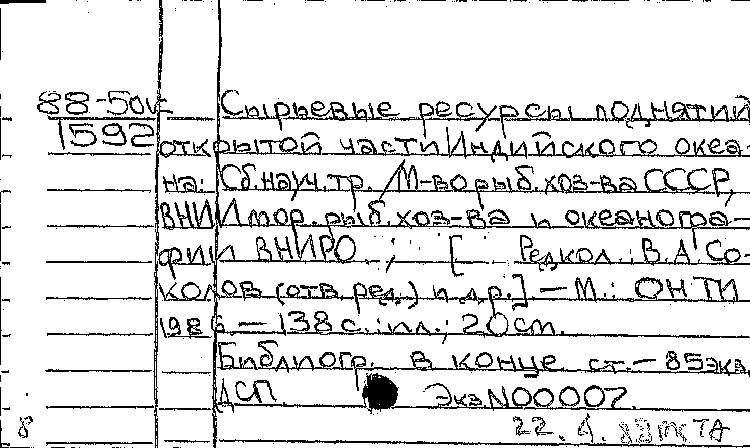 88-50к Сырьевые ресурсы поднятий
1592 открытой части Индийского океа-
на: Сб.науч.тр. / М-во рыб.хоз-ва СССР,
ВНИИ мор. рыб.хоз-ва и океаногра-
фии ВНИРО ; [ Редкол.: В.А.Со-
колов (отв.ред.) и др.] — М.: ОНТИ
1986. — 138 с.: ил.; 20 см.
Библиогр. в конце ст. — 85 экз.
ДСП. Экз.N00007.
8 22. 4.